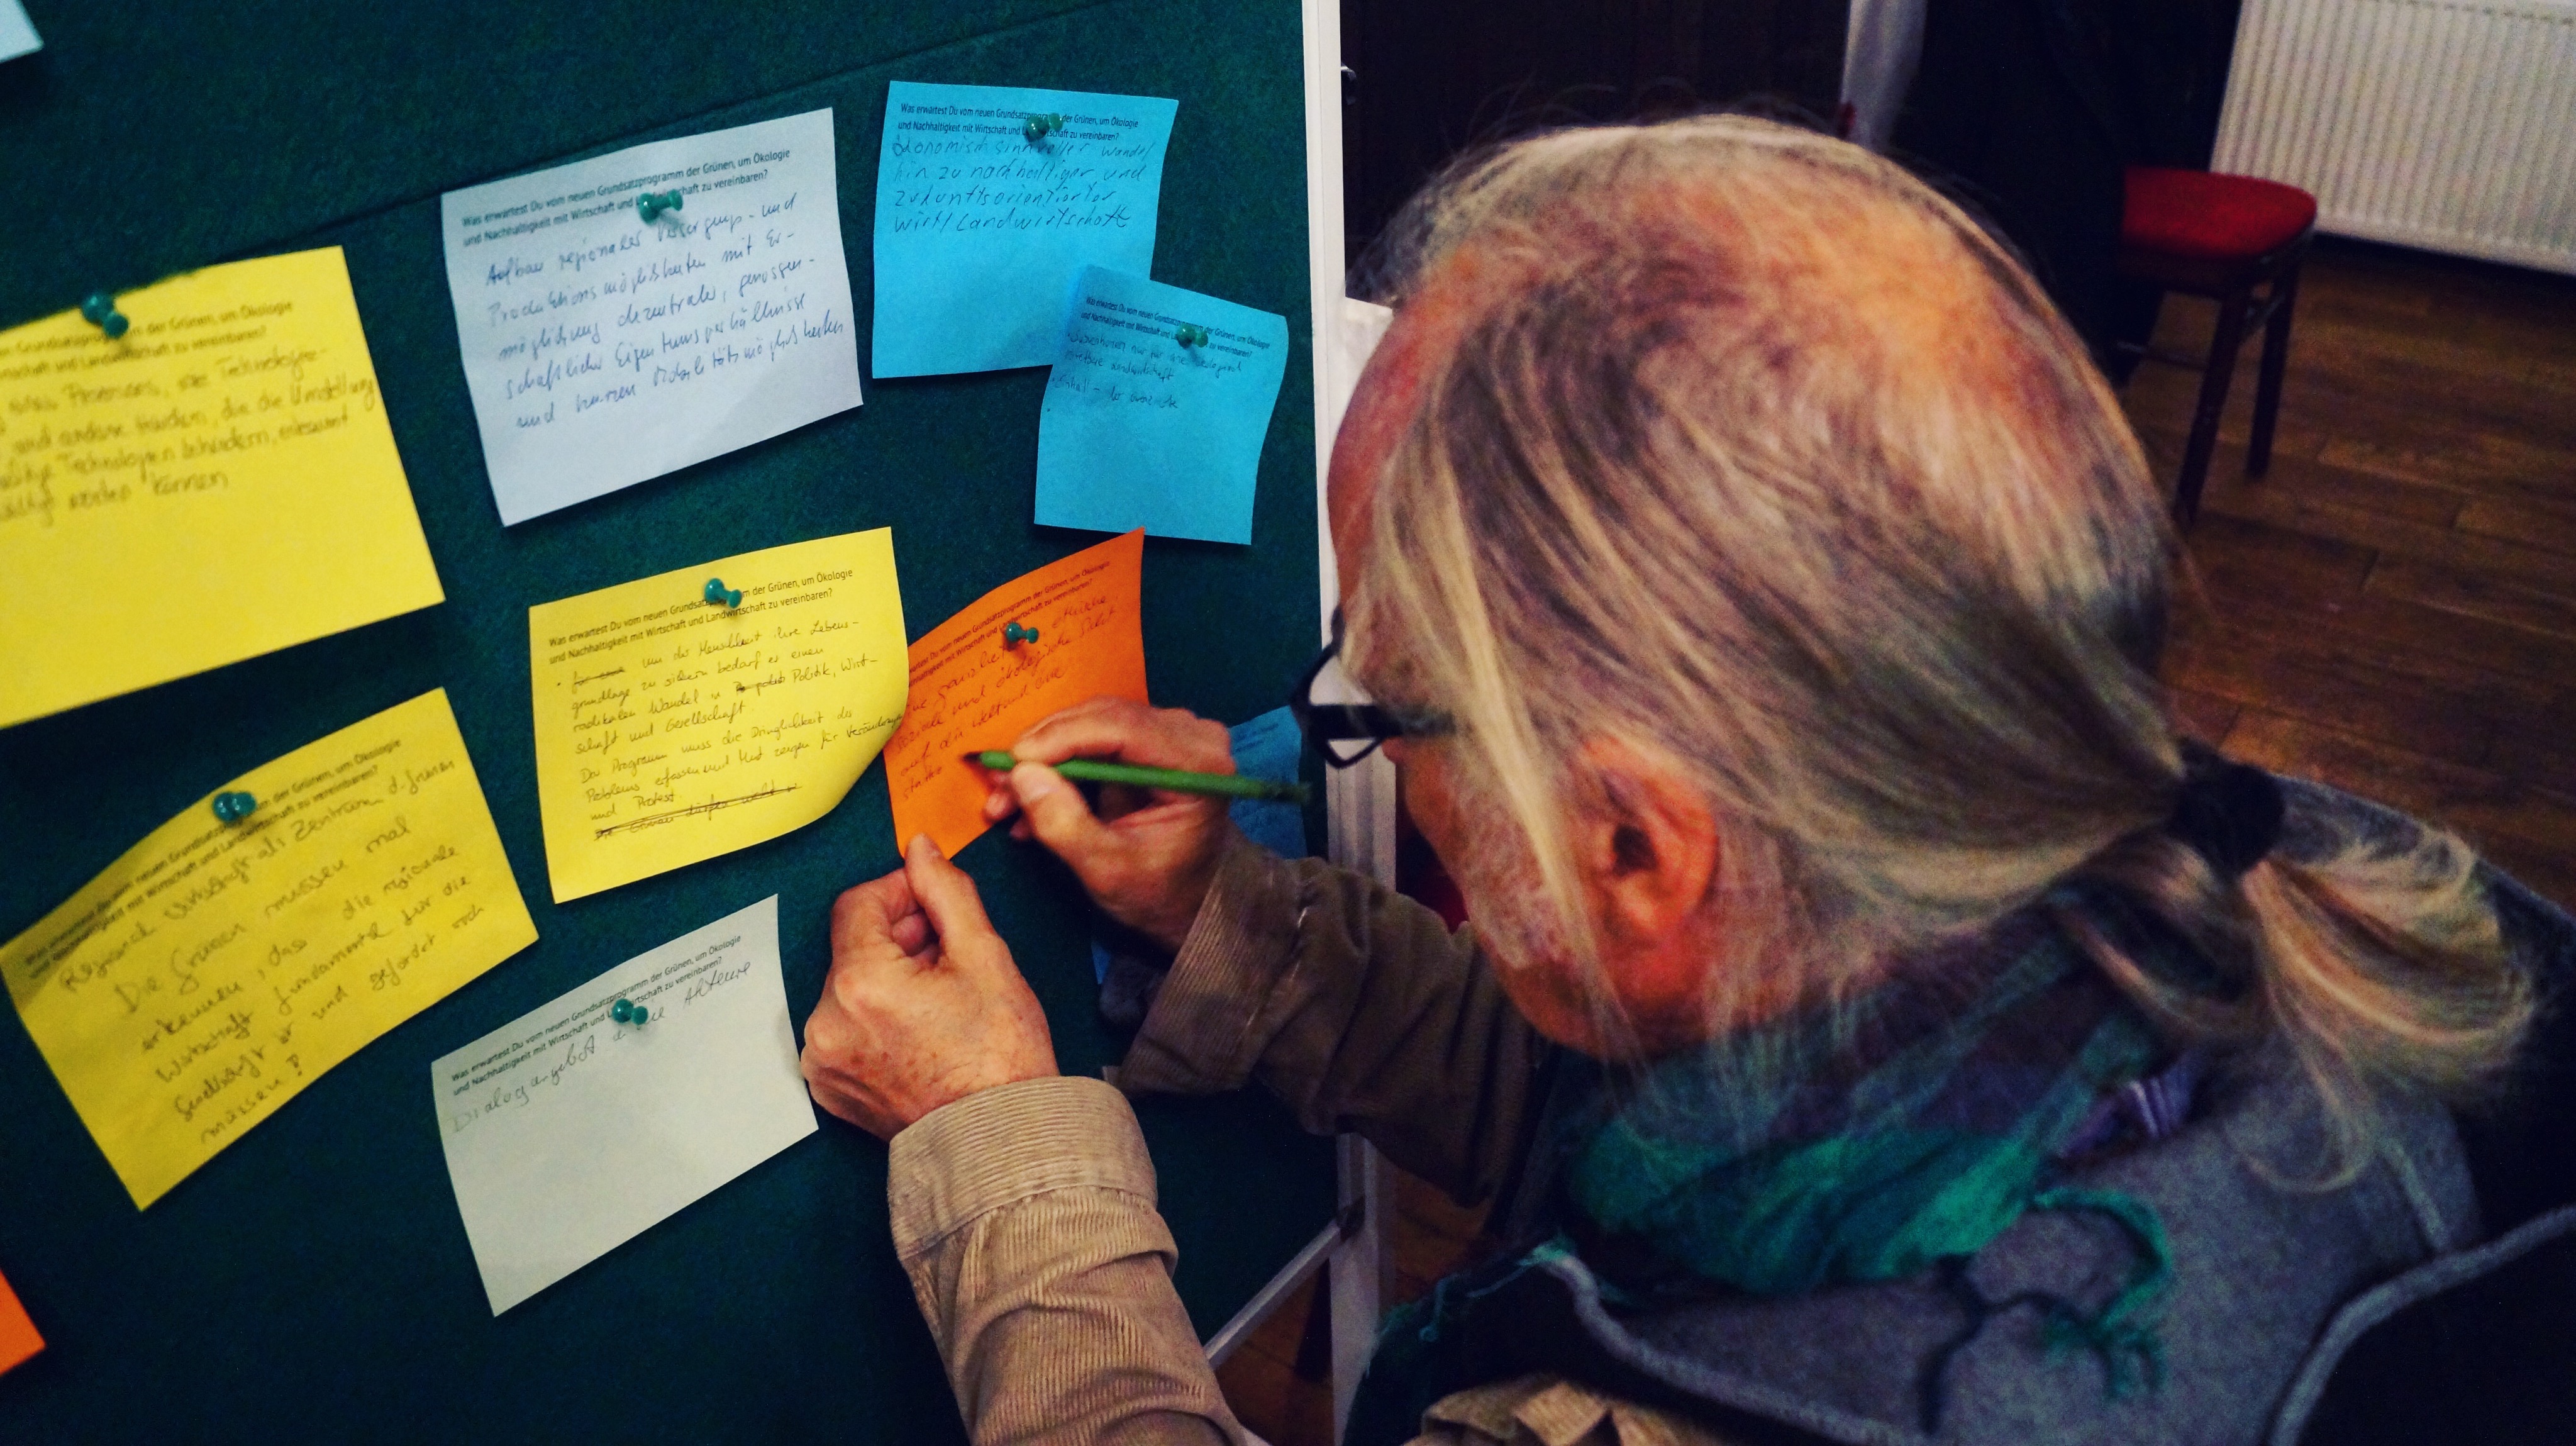 der Grünen, um Ökologie
und Landwirtschaft zu vereinbaren?
Technologie-
und andere Hürden, die die Umstellung
Technologien behindern, erkannt
werden können
Was erwartest Du vom neuen Grundsatzprogramm der Grünen, um Ökologie
und Nachhaltigkeit mit Wirtschaft und zu vereinbaren?
Aufbau regionaler Versorgungs- und
Produktionsmöglichkeiten mit Er-
möglichung dezentraler, genossen-
schaftlicher Eigentumsverhältnisse
und kurzen Mobilitätsmöglichkeiten
Was erwartest Du vom neuen Grundsatzprogramm der Grünen, um Ökologie
und Nachhaltigkeit mit Wirtschaft und zu vereinbaren?
ökonomisch sinnvoller Wandel
hin zu nachhaltiger und
zukunftsorientierter
Wirt/Landwirtschaft
Was erwartest Du vom neuen der Grünen, um Ökologie
und Nachhaltigkeit mit Wirtschaft und zu vereinbaren?
nur für
Landwirtschaft
Was erwartest Du vom neuen Grundsatz der Grünen, um Ökologie
und Nachhaltigkeit mit Wirtschaft und Landwirtschaft zu vereinbaren?
um der Menschheit ihre Lebens-
grundlage zu sichern bedarf es einen
radikalen Wandel in Politik, Wirt-
schaft und Gesellschaft.
Das Programm muss die Dringlichkeit des
Problems erfassen und Mut zeigen für Veränderung
und Protest
vom neuen Grundsatzprogramm der Grünen, um Ökologie
mit Wirtschaft und zu vereinbaren?
ethische
soziale und ökologische Sicht
auf die Welt und
Was erwartest Du vom neuen der Grünen, um Ökologie
und Nachhaltigkeit mit Wirtschaft und Landwirtschaft zu vereinbaren?
Regional Wirtschaft als Zentrum d. Grünen
Die Grünen müssen mal
erkennen, dass die regionale
Wirtschaft fundamental für die
Gesellschaft ist und gefördert
müssen!
Was erwartest Du vom neuen Grundsatzprogramm der Grünen, um Ökologie
und Nachhaltigkeit mit Wirtschaft und zu vereinbaren?
Dialogangebot an Akteure